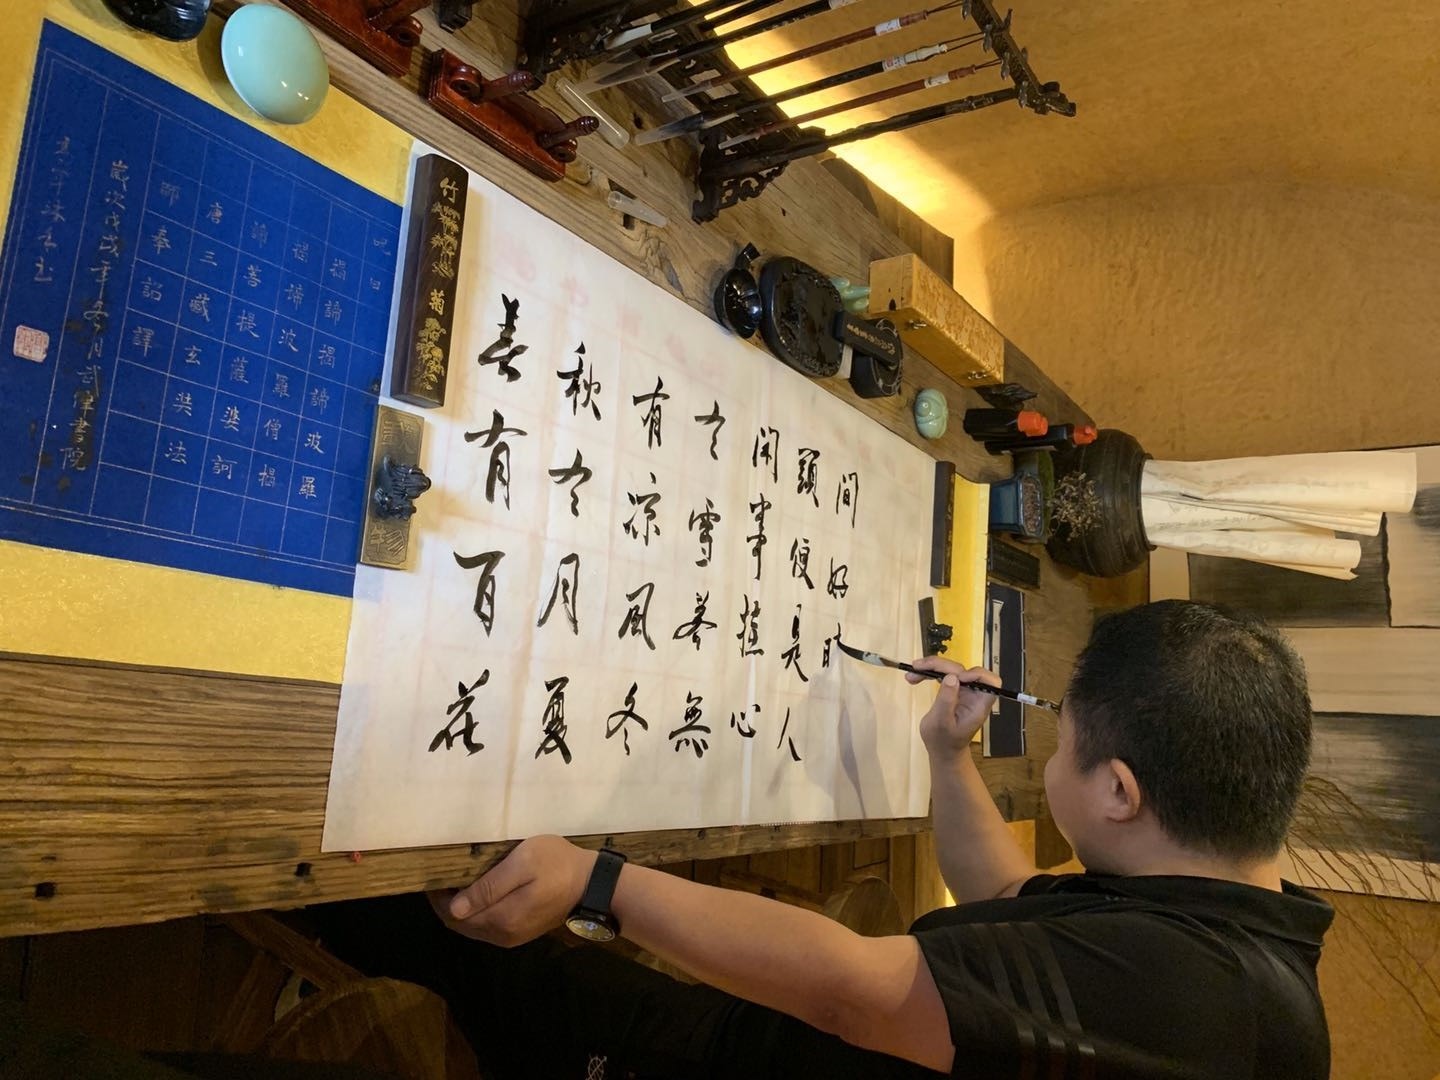 春有百花
秋有月夏
有凉風冬
有雪若無
閑事挂心
頭便是人
間好时
呪曰
揭諦揭諦波羅
揭諦波羅僧揭
諦菩提薩婆訶
唐三藏玄奘法
師奉詔譯
歲次戊戌年冬月武肇書院
竹
菊